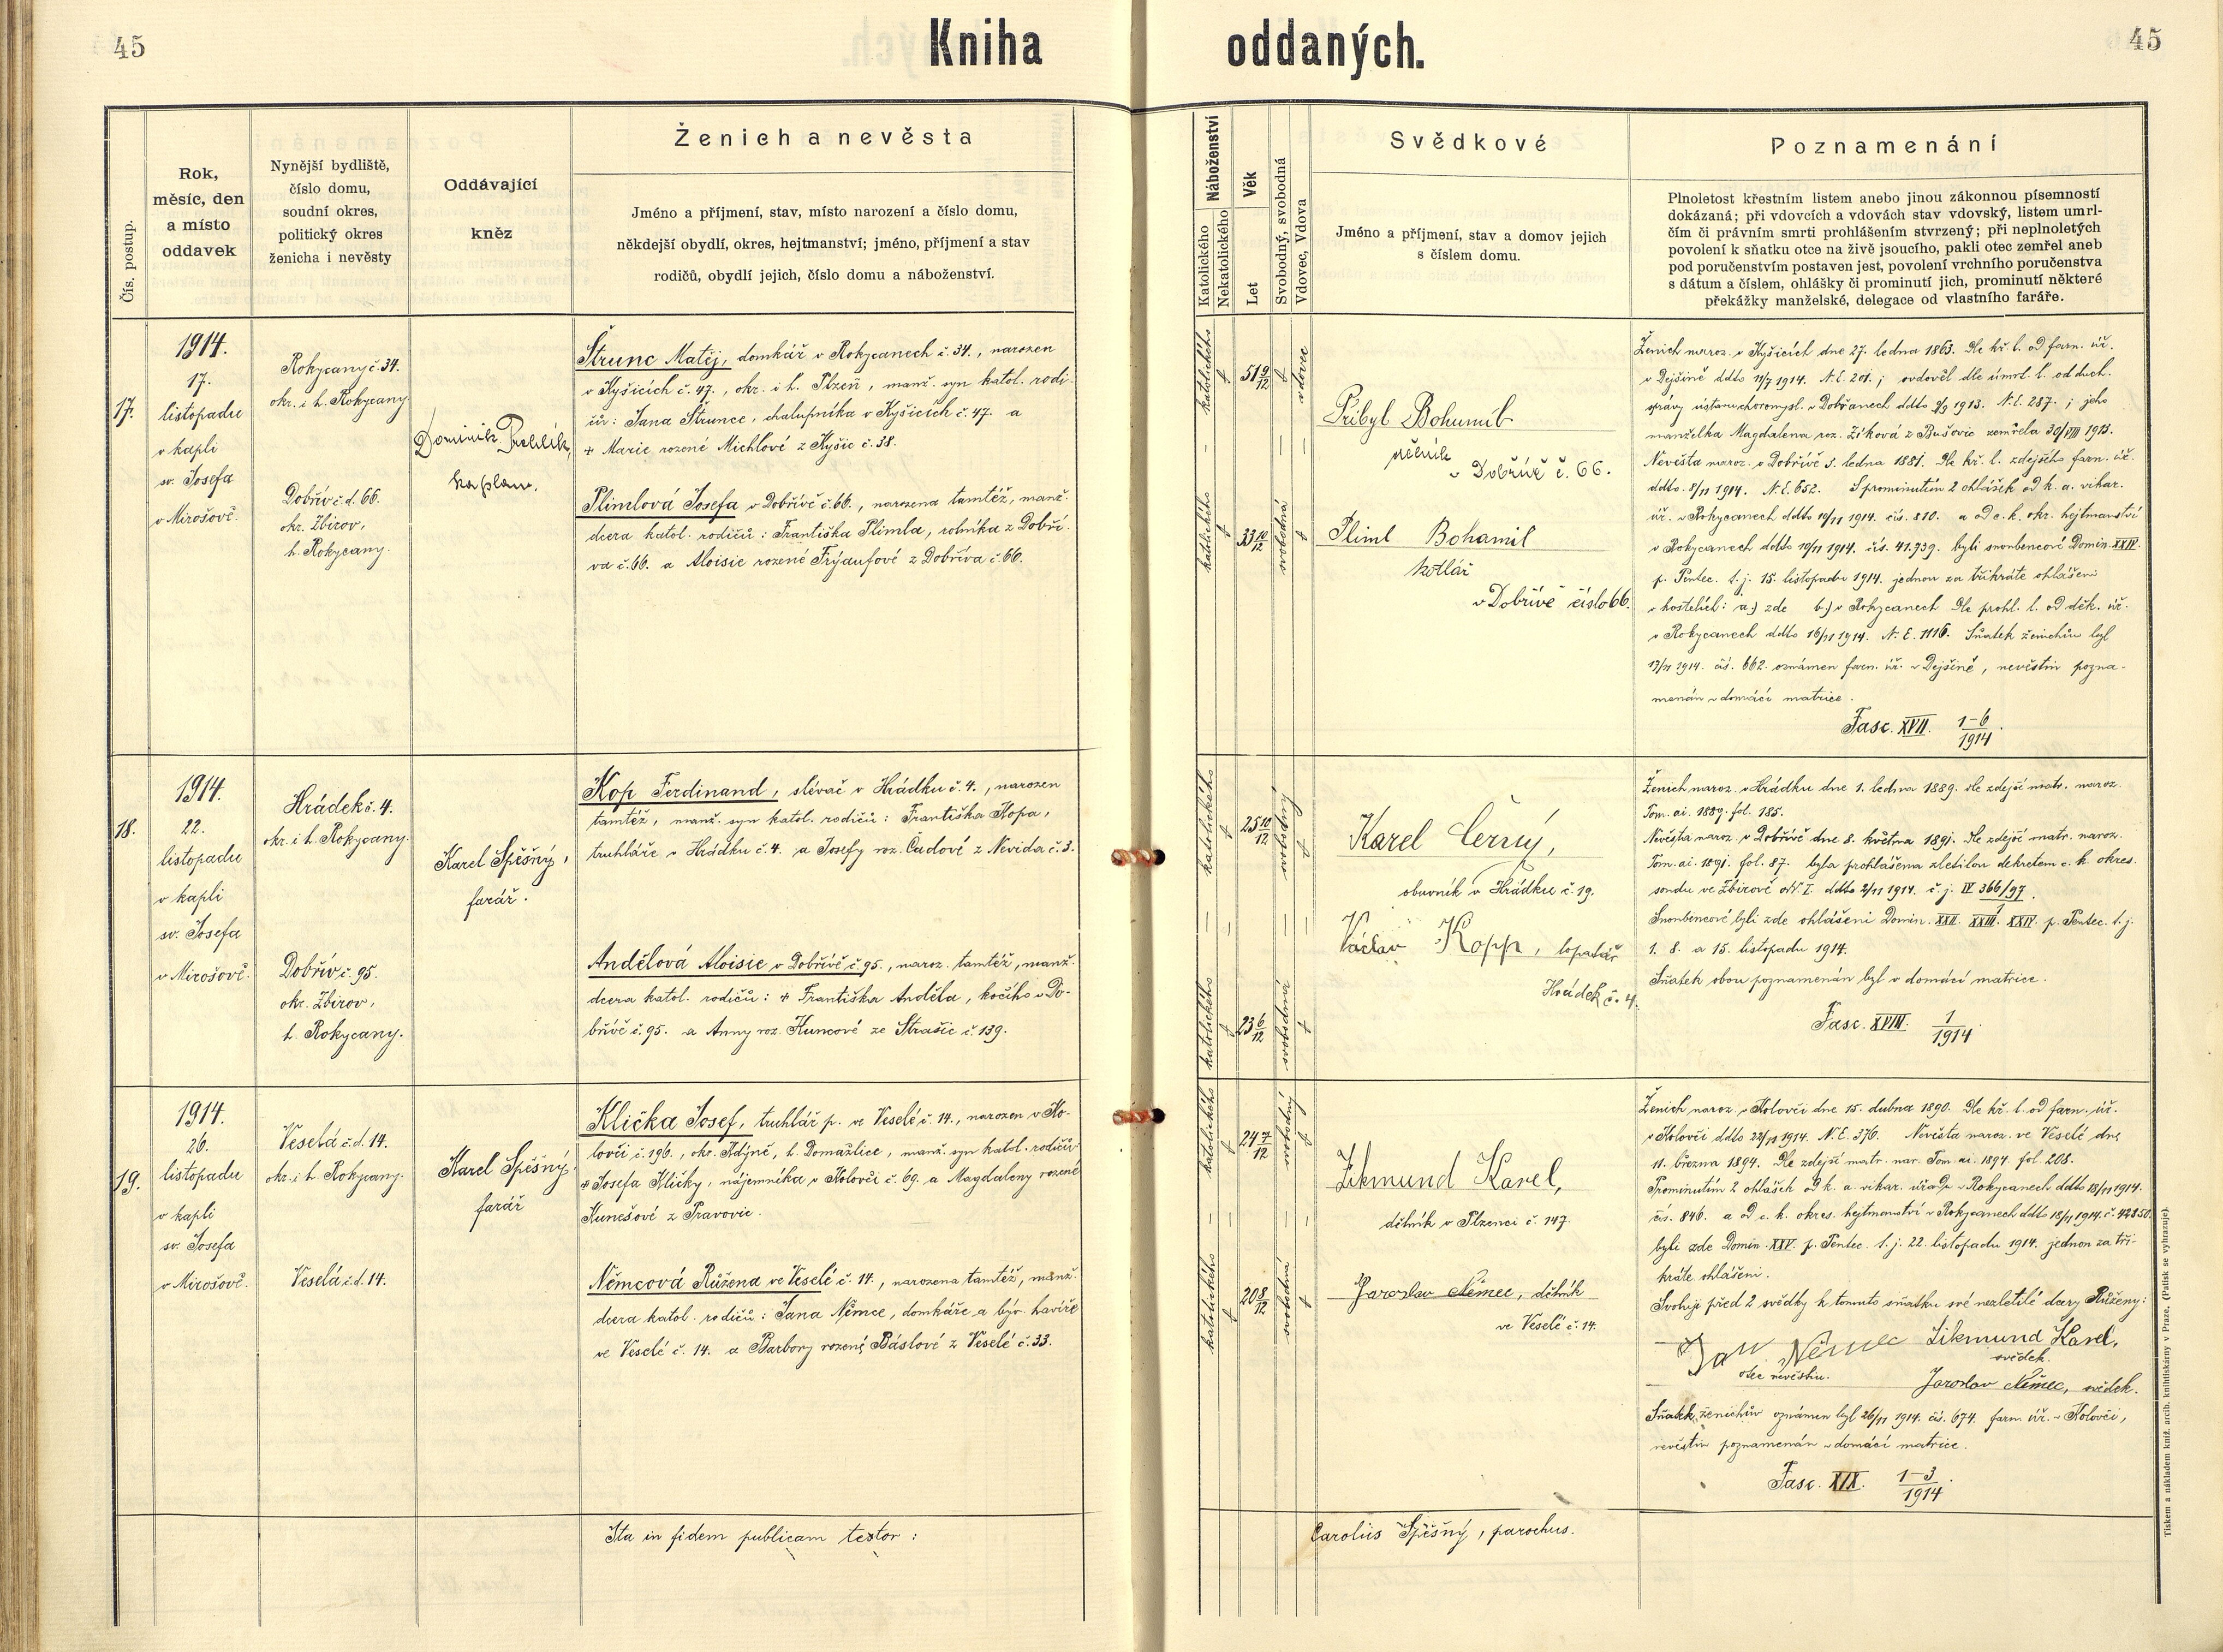 45
Kniha oddaných.
45
Čís. postup.
Rok,
měsíc, den
a místo
oddavek
Nynější bydliště,
číslo domu,
soudní okres,
politický okres
ženicha i nevěsty
Oddávající
kněz
Ženich a nevěsta
Jméno a příjmení, stav, místo narození a číslo domu,
někdejší obydlí, okres, hejtmanství; jméno, příjmení a stav
rodičů, obydlí jejich, číslo domu a náboženství.
Náboženství
Katolického
Nekatolického
Věk
Let
Svobodný, svobodná
Vdovec, Vdova
Svědkové
Jméno a příjmení, stav a domov jejich
s číslem domu.
Poznamenání
Plnoletost křestním listem anebo jinou zákonnou písemností
dokázaná; při vdovcích a vdovách stav vdovský, listem umrl-
čím či právním smrti prohlášením stvrzený; při neplnoletých
povolení k sňatku otce na živě jsoucího, pakli otec zemřel aneb
pod poručenstvím postaven jest, povolení vrchního poručenstva
s dátum a číslem, ohlášky či prominutí jich, prominutí některé
překážky manželské, delegace od vlastního faráře.
17.
1914.
17.
listopadu
v kapli
sv. Josefa
v Mirošově.
Rokycany č. 34.
okr. i h. Rokycany
Dobřív č.d. 66.
okr. Zbirov,
h. Rokycany.
Dominik
kaplan.
Štrunc Matěj, domkář v Rokycanech č. 34., narozen
v Kyšicích č. 47., okr. i h. Plzeň, manž. syn katol. rodi-
čů: Jana Štrunce, chalupníka v Kyšicích č. 47. a
+ Marie rozené Michlové z Kyšic č. 38.
Plimlová Josefa v Dobřívě č. 66., narozena tamtéž, manž.
dcera katol. rodičů: Františka Plimla, rolníka z Dobří-
va č. 66. a Aloisie rozené Frýdaufové z Dobříva č. 66.
katolického
51 9/12
vdovec
katolického
33 10/12
svobodná
Přibyl Bohumil
v Dobřívě č. 66.
Pliml Bohumil
kotlář
v Dobřívě číslo 66.
Ženich naroz. v Kyšicích dne 27. ledna 1863. dle kř. l. od farn. úř.
v Dejšině ddto 11/7 1914. N.E. 201.; ovdověl dle úmrt. l. od duch.
správy ústavu choromysl. v Dobřanech ddto 9/9 1913. N.E. 287.; jeho
manželka Magdalena roz. Žiková z Bušovic zemřela 30/VIII 1913.
Nevěsta naroz. v Dobřívě 5. ledna 1881. dle kř. l. zdejšího farn. úř.
ddto. 8/11 1914. N.E. 652. S prominutím 2 ohlášek od k. a. vikar.
úř. v Rokycanech ddto 10/11 1914. čís. 810. a od c. k. okr. hejtmanství
v Rokycanech ddto 10/11 1914. čís. 41.939. byli snoubencové Domin. XXIV.
p. Pentec. t. j. 15. listopadu 1914. jednou za třikráte ohlášeni
v kostelích: a.) zde b.) v Rokycanech dle prohl. l. od děk. úř.
v Rokycanech ddto 16/11 1914. N.E. 1116. Sňatek ženichův byl
17/11 1914. čís. 662. oznámen farn. úř. v Dejšině, nevěstin pozna-
menán v domácí matrice.
Fasc. XVII. 1-6/1914.
18.
1914.
22.
listopadu
v kapli
sv. Josefa
v Mirošově.
Hrádek č. 4.
okr. i h. Rokycany.
Dobřív č. 95.
okr. Zbirov,
h. Rokycany.
Karel Spěšný,
farář.
Kop Ferdinand, slévač v Hrádku č. 4., narozen
tamtéž, manž. syn katol. rodičů: Františka Kopa,
truhláře v Hrádku č. 4. a Josefy roz. Čadové z Nevida č. 3.
Andělová Aloisie v Dobřívě č. 95., naroz. tamtéž, manž.
dcera katol. rodičů: + Františka Anděla, kočího v Do-
břívě č. 95. a Anny roz. Huncové ze Strašic č. 139.
katolického
25 10/12
svobodný
katolického
23 6/12
svobodná
Karel Černý,
obuvník v Hrádku č. 19.
Václav Kopp, lopatář
Hrádek č. 4.
Ženich naroz. v Hrádku dne 1. ledna 1889. dle zdejší matr. naroz.
Tom. ai. 1889. fol. 185.
Nevěsta naroz. v Dobřívě dne 8. května 1891. dle zdejší matr. naroz.
Tom. ai. 1891. fol. 87. byla prohlášena zletilou dekretem c. k. okres.
soudu ve Zbirově odd. I. ddto 2/11 1914. č. j. IV 366/97.
Snoubencové byli zde ohlášeni Domin. XXII. XXIII. XXIV. p. Pentec. t. j.
1. 8. a 15. listopadu 1914.
Sňatek obou poznamenán byl v domácí matrice.
Fasc. XVIII. 1/1914
19.
1914.
26.
listopadu
v kapli
sv. Josefa
v Mirošově.
Veselá č.d. 14.
okr. i h. Rokycany.
Veselá č.d. 14.
Karel Spěšný
farář
Klička Josef, truhlář p. ve Veselé č. 14., narozen v Ko-
lovči č. 196., okr. Kdyně, h. Domažlice, manž. syn katol. rodičů:
+ Josefa Kličky, nájemníka v Kolovči č. 69. a Magdaleny rozené
Kunešové z Pravovic.
Němcová Růžena ve Veselé č. 14., narozena tamtéž, manž.
dcera katol. rodičů: Jana Němce, domkáře a býv. havíře
ve Veselé č. 14. a Barbory rozené Báslové z Veselé č. 33.
katolického
24 7/12
svobodný
katolického
20 8/12
svobodná
Zikmund Karel,
dělník v Plzenci č. 147.
Jaroslav Němec, dělník
ve Veselé č. 14.
Ženich naroz. v Kolovči dne 15. dubna 1890. dle kř. l. od farn. úř.
v Kolovči ddto 22/11 1914. N.E. 376. Nevěsta naroz. ve Veselé dne
11. března 1894. dle zdejší matr. nar. Tom. ai. 1894. fol. 208.
Prominutím 2 ohlášek od k. a. vikar. úřadu v Rokycanech ddto 18/11 1914.
čís. 846. a od c. k. okres. hejtmanství v Rokycanech ddto 18/11 1914. č. 42850.
byli zde Domin. XXV. p. Pentec. t. j. 22. listopadu 1914. jednou za tři-
kráte ohlášeni.
Svoluji před 2 svědky k tomuto sňatku své nezletilé dcery Růženy:
Jan Němec Zikmund Karel,
otec nevěstin. svědek.
Jaroslav Němec, svědek.
Sňatek ženichův oznámen byl 26/11 1914. čís. 674. farn. úř. v Kolovči,
nevěstin poznamenán v domácí matrice.
Fasc. XIX. 1-3/1914.
Ita in fidem publicam testor:
Carolus Spěšný, parochus.
Tiskem a nákladem kníž. arcib. knihtiskárny v Praze. (Patisk se vyhrazuje).